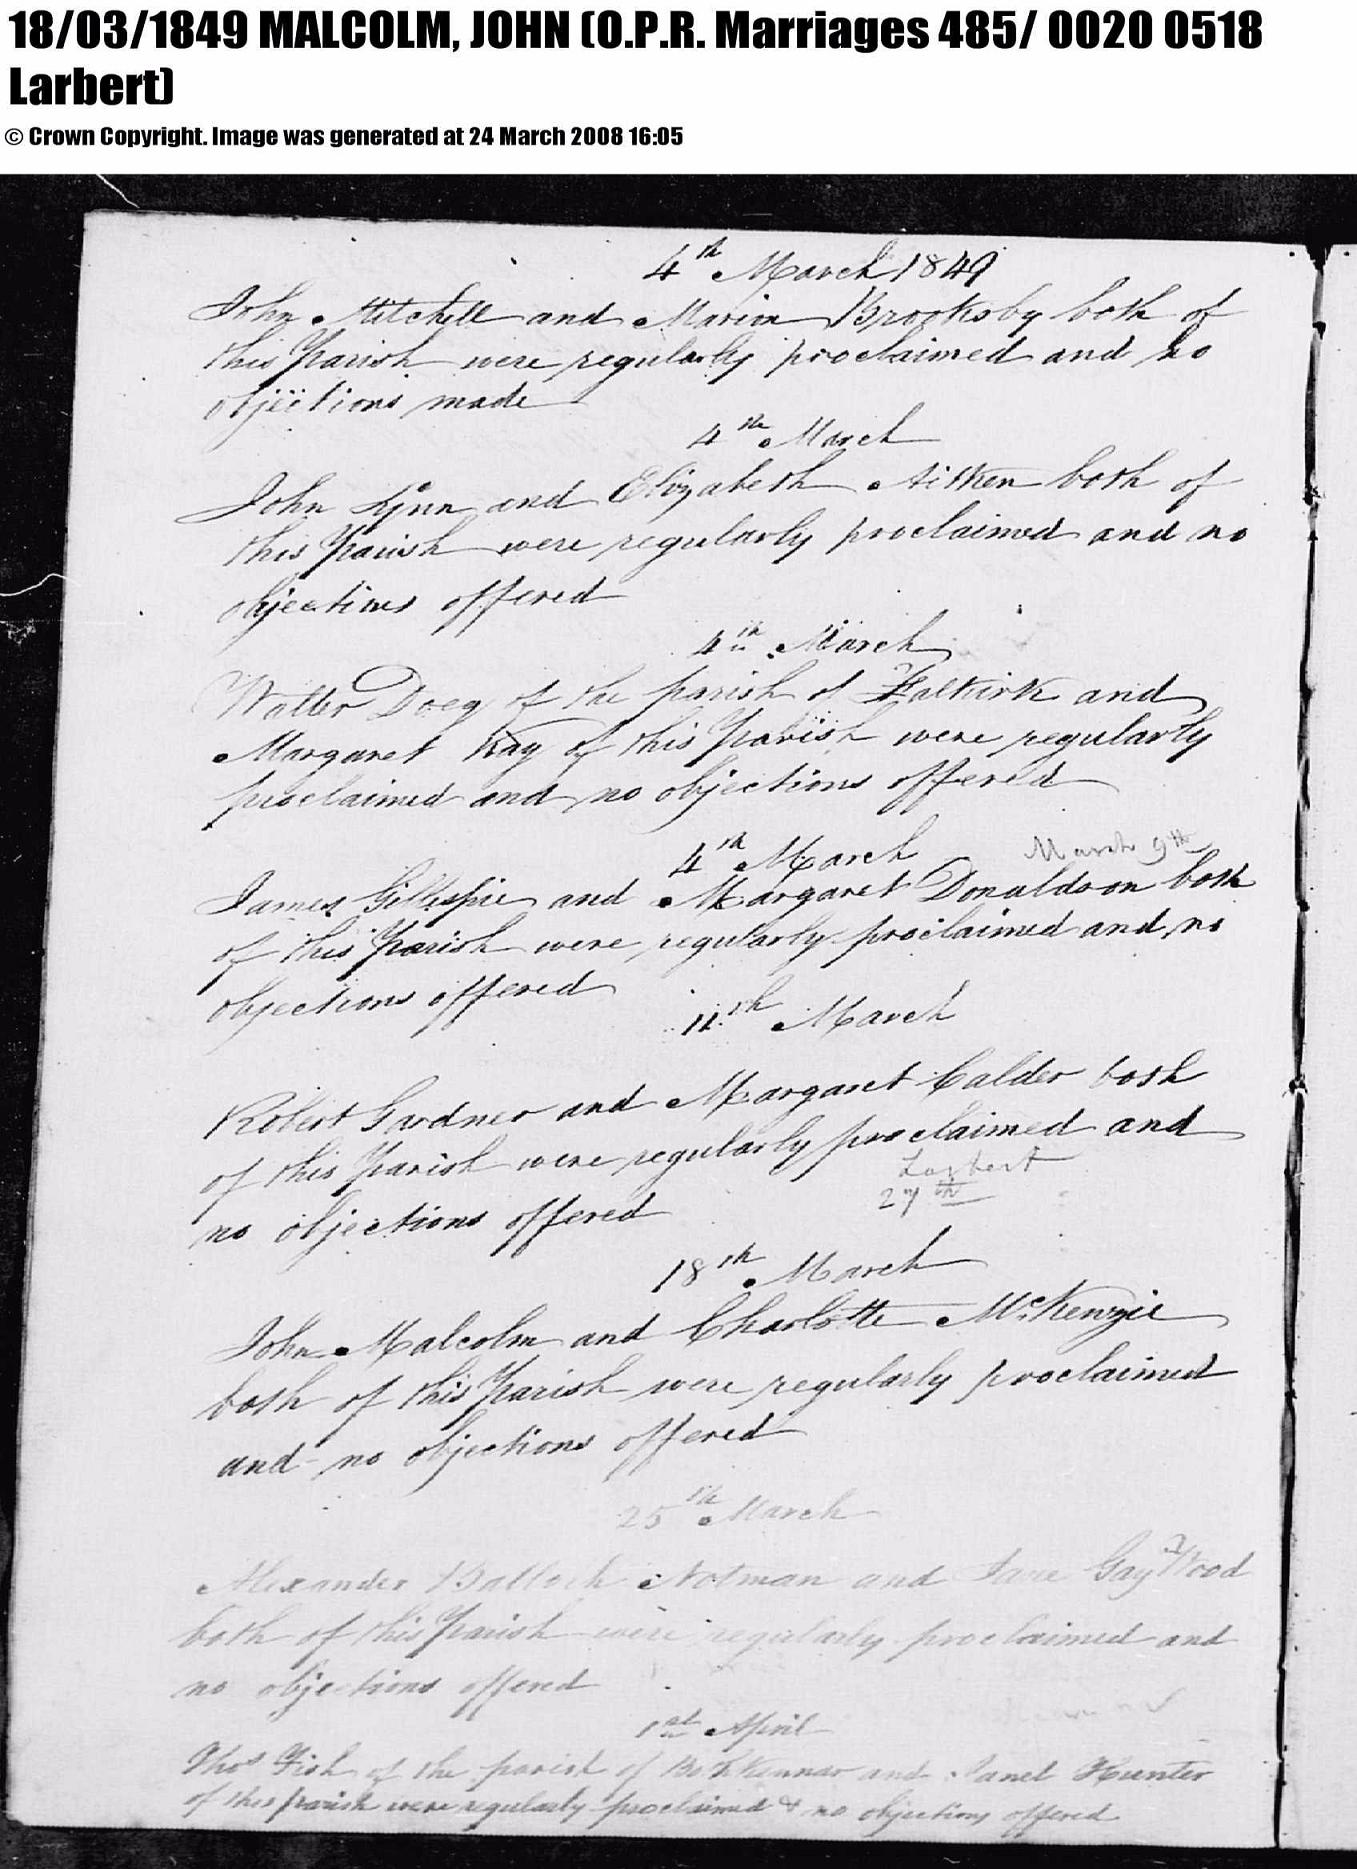 18/03/1849 MALCOLM, JOHN (O.P.R. Marriages 485/ 0020 0518
Larbert)
© Crown Copyright. Image was generated at 24 March 2008 16:05
4th March 1849
John Mitchell and Marion Brooksby both of
this Parish were regularly proclaimed and no
objections made
4th March
John Lynn and Elizabeth Aitken both of
this Parish were regularly proclaimed and no
objections offered
4th March
Walter Doeg of the parish of Falkirk and
Margaret Kay of this Parish were regularly
proclaimed and no objections offered
4th March March 9th
James Gillespie and Margaret Donaldson both
of this Parish were regularly proclaimed and no
objections offered
11th March
Robert Gardner and Margaret Calder both
of this Parish were regularly proclaimed and
Larbert
27th
no objections offered
18th March
John Malcolm and Charlotte McKenzie
both of this Parish were regularly proclaimed
and no objections offered
25th March
Alexander Balloch Notman and Jane Gay Wood
both of this Parish were regularly proclaimed and
no objections offered
1st April
Thos Fish of the parish of Bothkennar and Janet Hunter
of this parish were regularly proclaimed & no objections offered